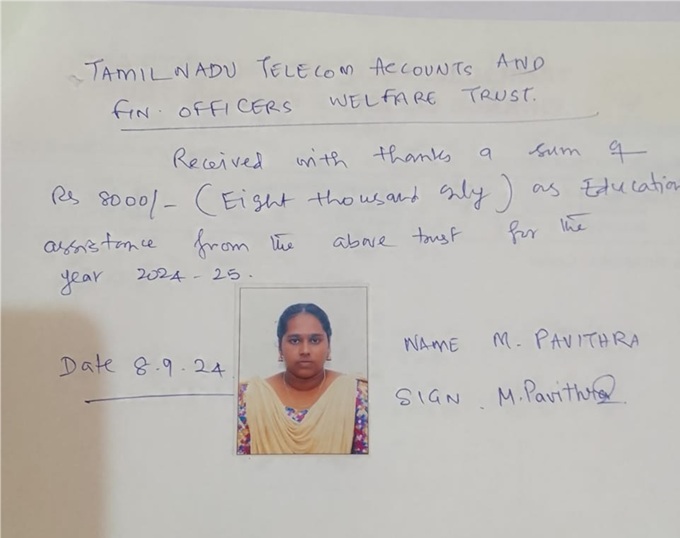 TAMIL NADU TELECOM ACCOUNTS AND
FIN. OFFICERS WELFARE TRUST.
Received with thanks a sum of
Rs 8000/- (Eight thousand only) as Education
assistance from the above trust for the
year 2024-25.
Date 8.9.24
NAME M. PAVITHRA
SIGN. M.Pavithra